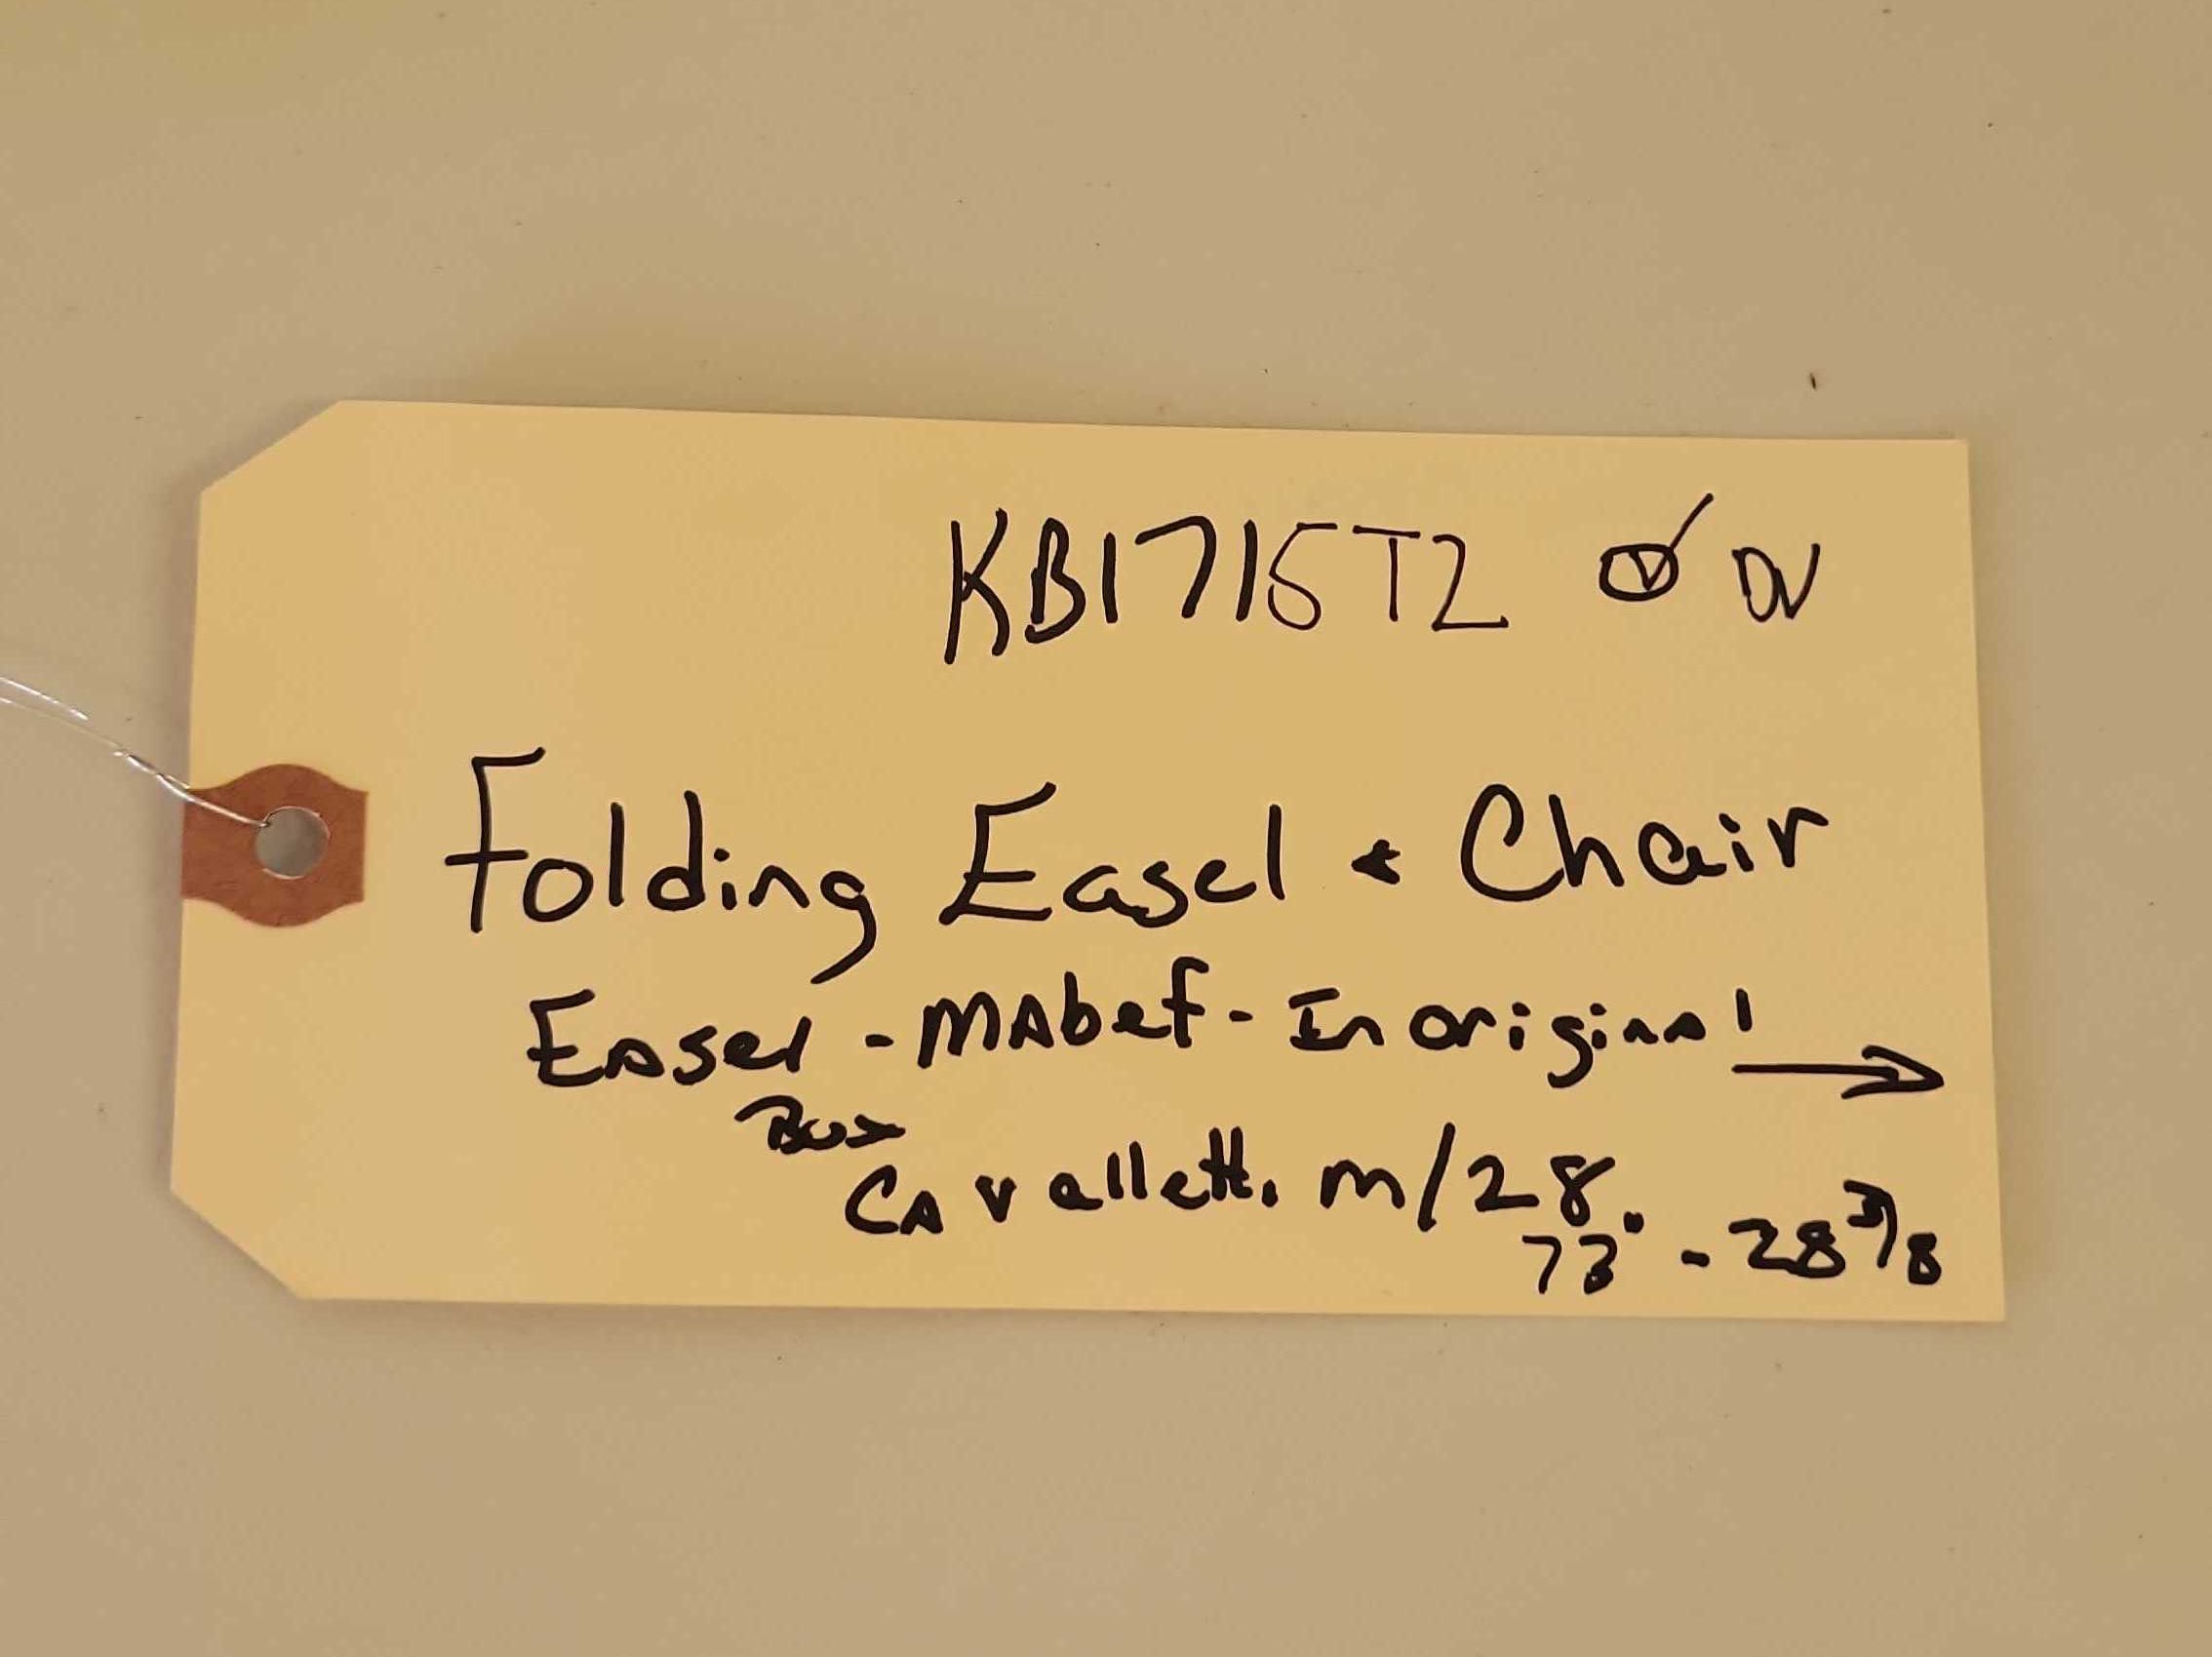 KB1715T2 DV
Folding Easel & Chair
Easel - MAbef - In original →
Box
CAvalletti m/28.
73" - 28 3/8